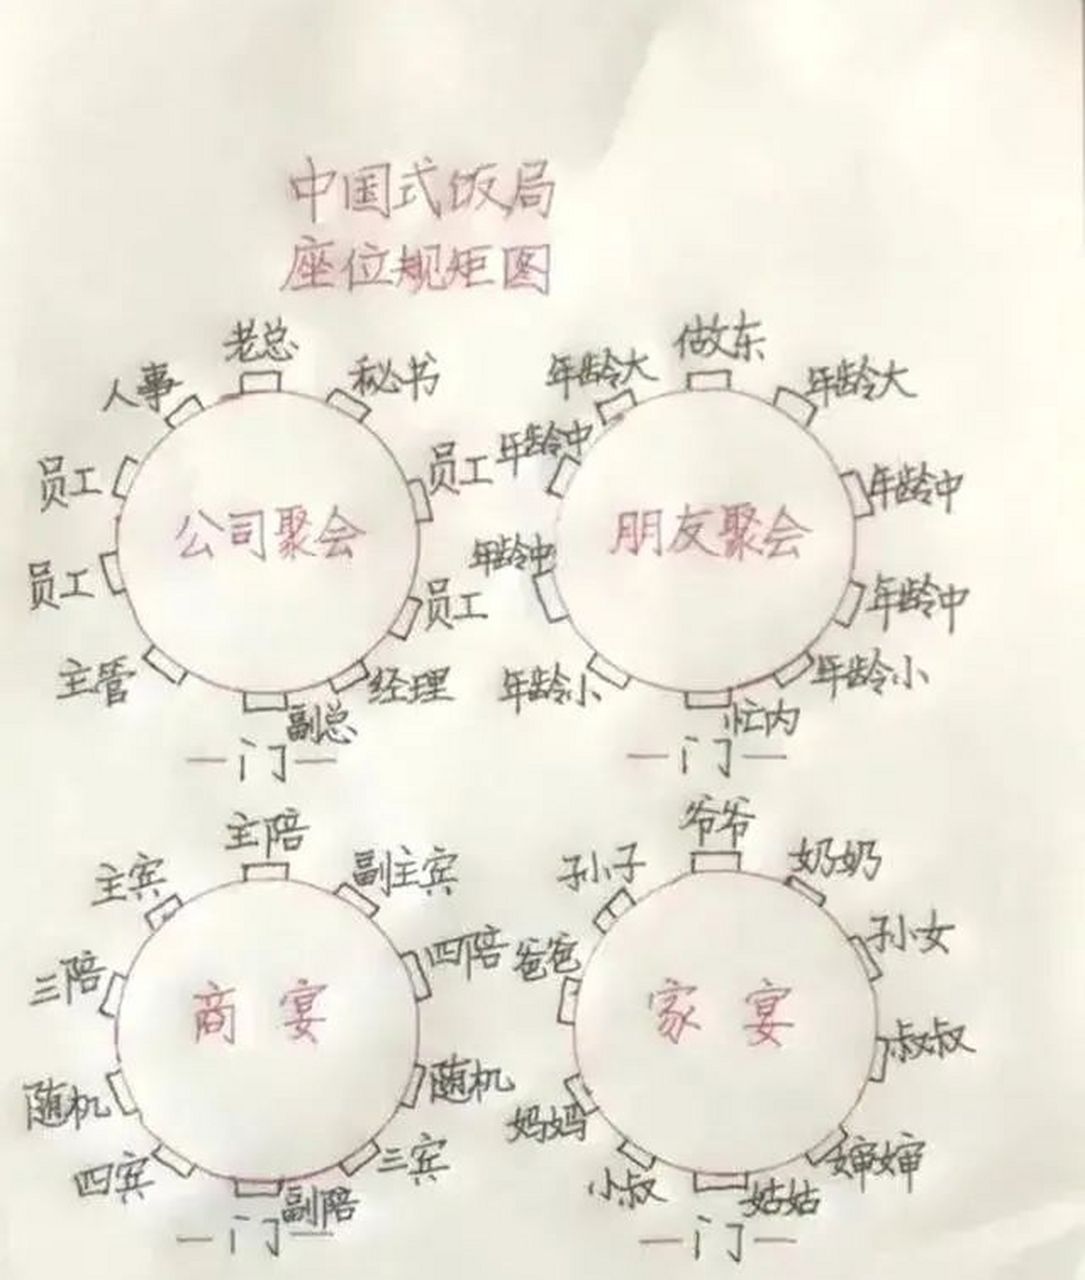 中国式饭局
座位规矩图
老总
人事
秘书
员工
员工
公司聚会
员工
员工
主管
经理
副总
门
做东
年龄大
年龄大
年龄中
年龄中
朋友聚会
年龄中
年龄中
年龄小
年龄小
忙内
门
主陪
主宾
副主宾
三陪
四陪
商 宴
随机
随机
四宾
三宾
副陪
门
爷爷
孙子
奶奶
爸爸
孙女
家 宴
叔叔
妈妈
婶婶
小叔
姑姑
门